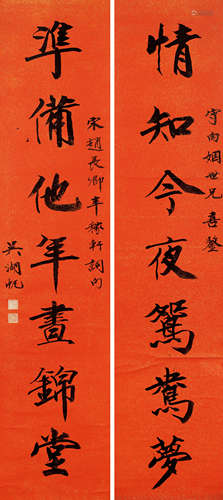 守向姻世兄喜鉴
情知今夜鴛鴦夢
準備他年晝錦堂
宋趙長卿辛稼軒詞句
吳湖帆